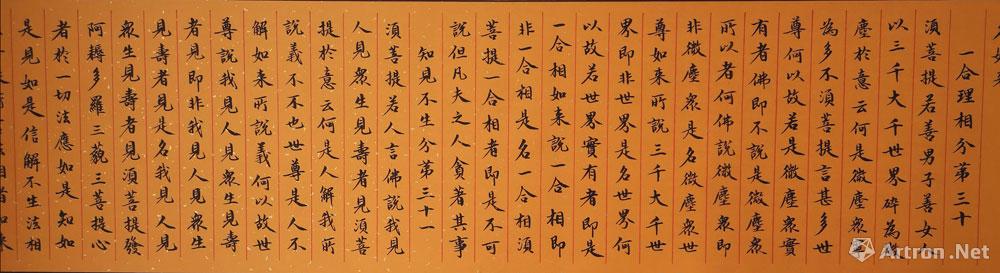 一合理相分第三十
須菩提若善男子善女人
以三千大千世界碎為微
塵於意云何是微塵眾寧
為多不須菩提言甚多世
尊何以故若是微塵眾實
有者佛即不說是微塵眾
所以者何佛說微塵眾即
非微塵眾是名微塵眾世
尊如來所說三千大千世
界即非世界是名世界何
以故若世界實有者即是
一合相如來說一合相即
非一合相是名一合相須
菩提一合相者即是不可
說但凡夫之人貪著其事
知見不生分第三十一
須菩提若人言佛說我見
人見眾生見壽者見須菩
提於意云何是人解我所
說義不不也世尊是人不
解如来所說義何以故世
尊說我見人見眾生見壽
者見即非我見人見眾生
見壽者見是名我見人見
眾生見壽者見須菩提發
阿耨多羅三藐三菩提心
者於一切法應如是知如
是見如是信解不生法相
Artron.Net